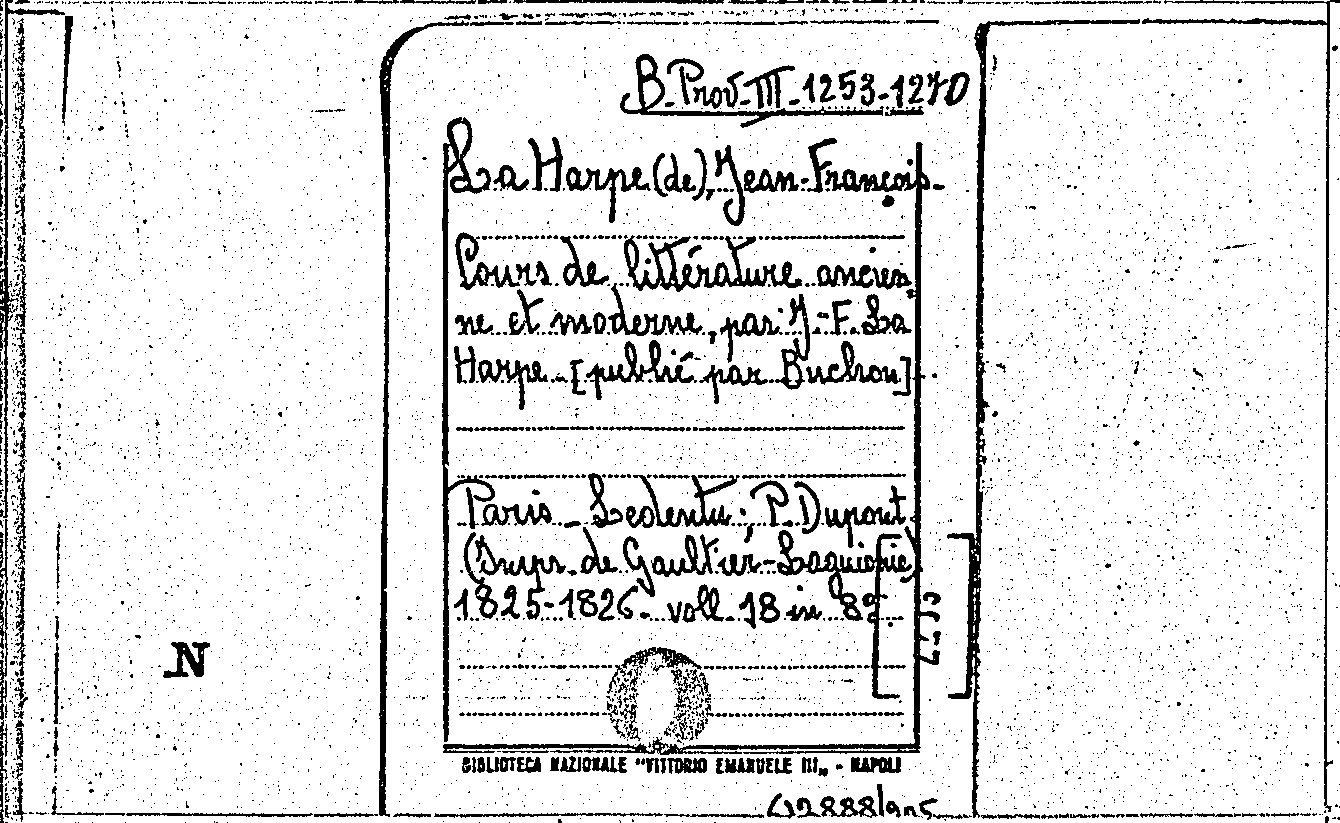 B. Prov. III. 1253-1270
La Harpe (de), Jean-François-
Cours de littérature ancien-
ne et moderne, par J.-F. La
Harpe [publié par Buchon].
Paris - Ledentu; P. Dupont
(Impr. de Gaultier-Laguionie)
1825-1826. voll. 18 in 8º.
N
BIBLIOTECA NAZIONALE "VITTORIO EMANUELE III„ - NAPOLI